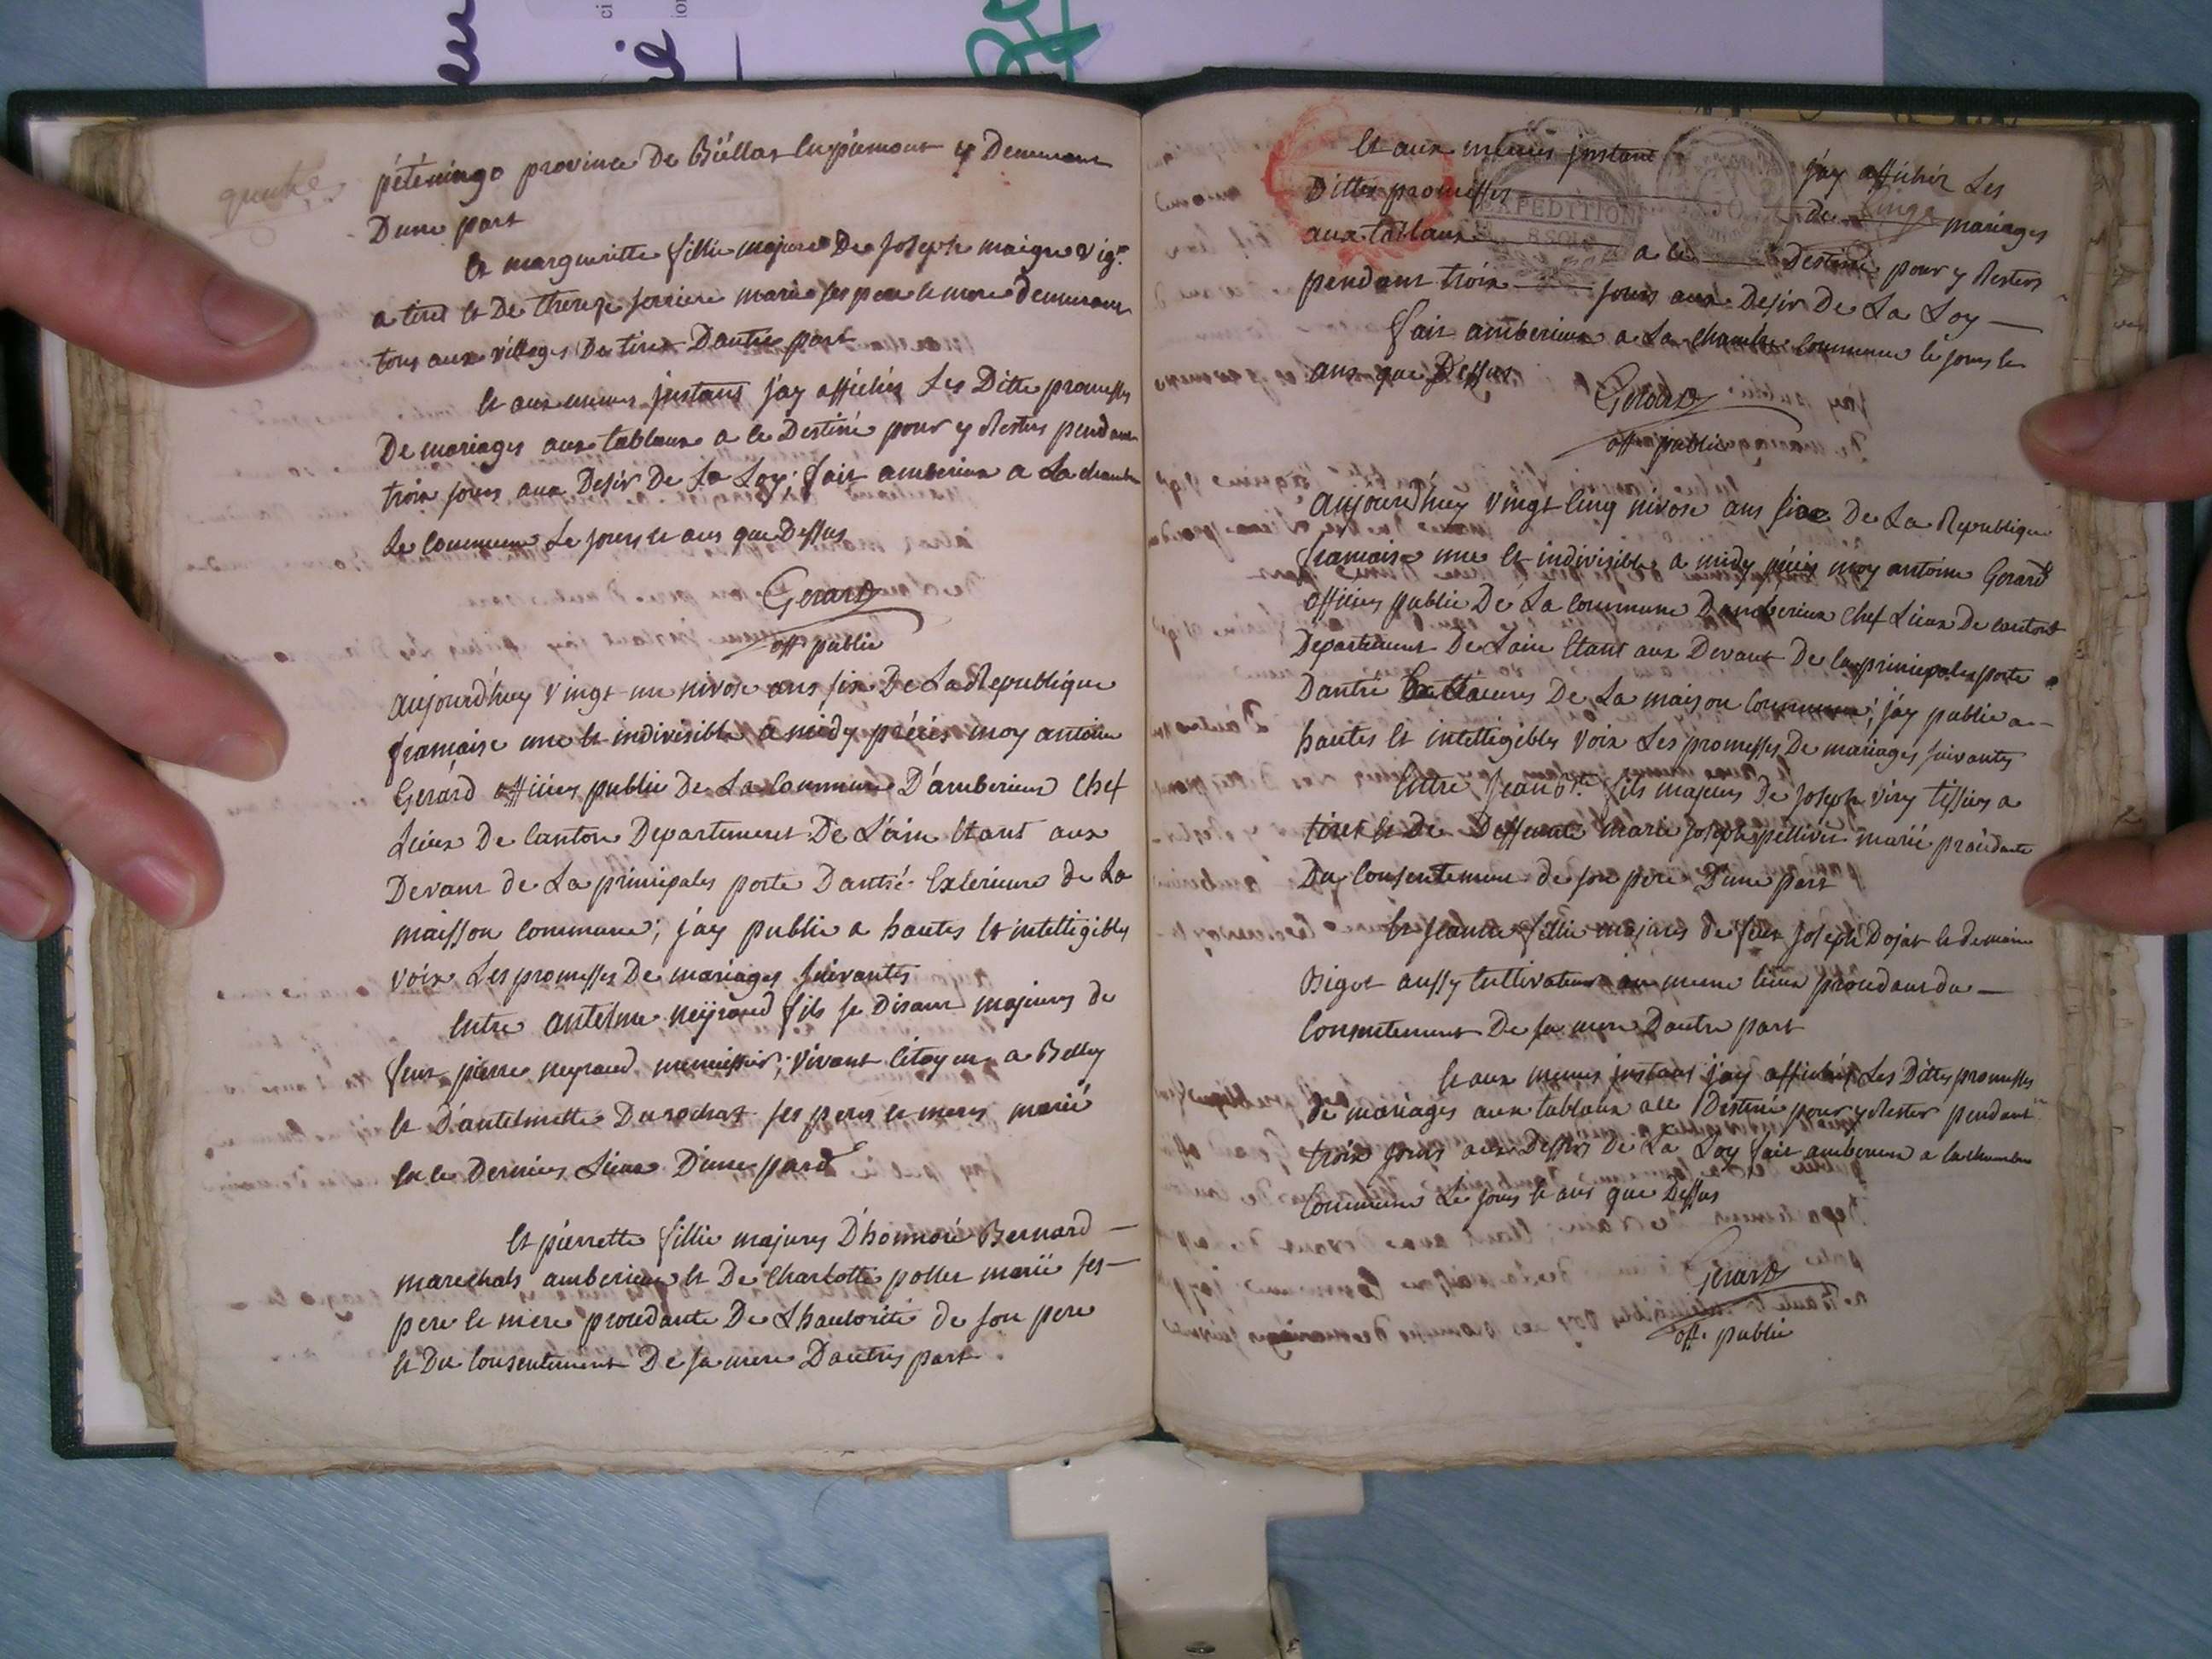 péténingo province De Biellas En piemont y Demeurant
Dune part
Et margueritte fillie majure De Joseph maigre vig.on
a tiret Et De thereze ferriere mariés ses pere Et mere demeurant
tous aux villages De tiret D'autre part
Et aux memes jnstans j'ay affichés Les Ditte promesses
De mariages aux tablaux a ce Destiné pour y Rester pendant
trois jours aux Desir De La Loy; fait amberieux a La chambre
De Commune Le jours Et ans que Dessus
Gerard
off public
aujourdhuy vingt un nivose ans six De La Republique
francaise une Et indivisible a midy précis moy antoine
Gerard officier public De La Commune D'amberieux Chef
Lieux De Canton Departement De L'ain Etant aux
Devant de La principales porte Dantré Exterieure de La
maisson commune; j'ay publie a hautes Et intelligibles
voix Les promesses De mariages suivantes
Entre antelme neyraud fils se Disant majeurs de
feux pierre neyraud menuissier; vivant Citoyen a Belley
Et D'antelmette Durochat ses peres Et meres marié
En ce Dernier Lieux D'une part
Et pierrette fillie majures D'honnoré Bernard
marechals amberieux Et De Charlotte pollet marié ses
pere Et mere procedante De L'hautorité de son pere
Et Du Consentement De sa mere D'autres part
Et aux memes jnstant j'ay affichéz Les
Dittes promesses de mariages
aux tablaux a ce Destiné pour y Rester
pendant trois jours aux Desir De La Loy
fait amberieux a La chambre Commune le jours Et
ans que Dessus
EXPEDITION
8 SOLS
Gerard
off public
aujourdhuy vingt Cinq nivose ans six De La Republique
francaise une Et indivisible a midy précis moy antoine Gerard
officier public De La Commune D'amberieux Chef Lieux De Canton
Departement De Lain Etant aux Devant De La principales porte
Dantré Exterieures De La maison Commune; j'ay publie a
hautes Et intelligibles voix Les promesses De mariages suivantes
Entre Jean B.te fils majeurs De Joseph viry tissier a
tiret Et De Deffunte marie Joseph pellivier marié procédante
Du Consentement de son pere D'une part
Et Jeanne fillie majures de feux Joseph Dojat Et de marie
Bigot aussy Cultivateur au meme lieux procedant du
Consentement De sa mere D'autre part
Et aux memes jnstans j'ay affichés Les Dittes promesses
de mariages aux tablaux a ce Destiné pour y Rester pendant
trois jours aux Desirs De La Loy fait amberieux a la chambre
Commune Le jours Et ans que Dessus
Gerard
off. public